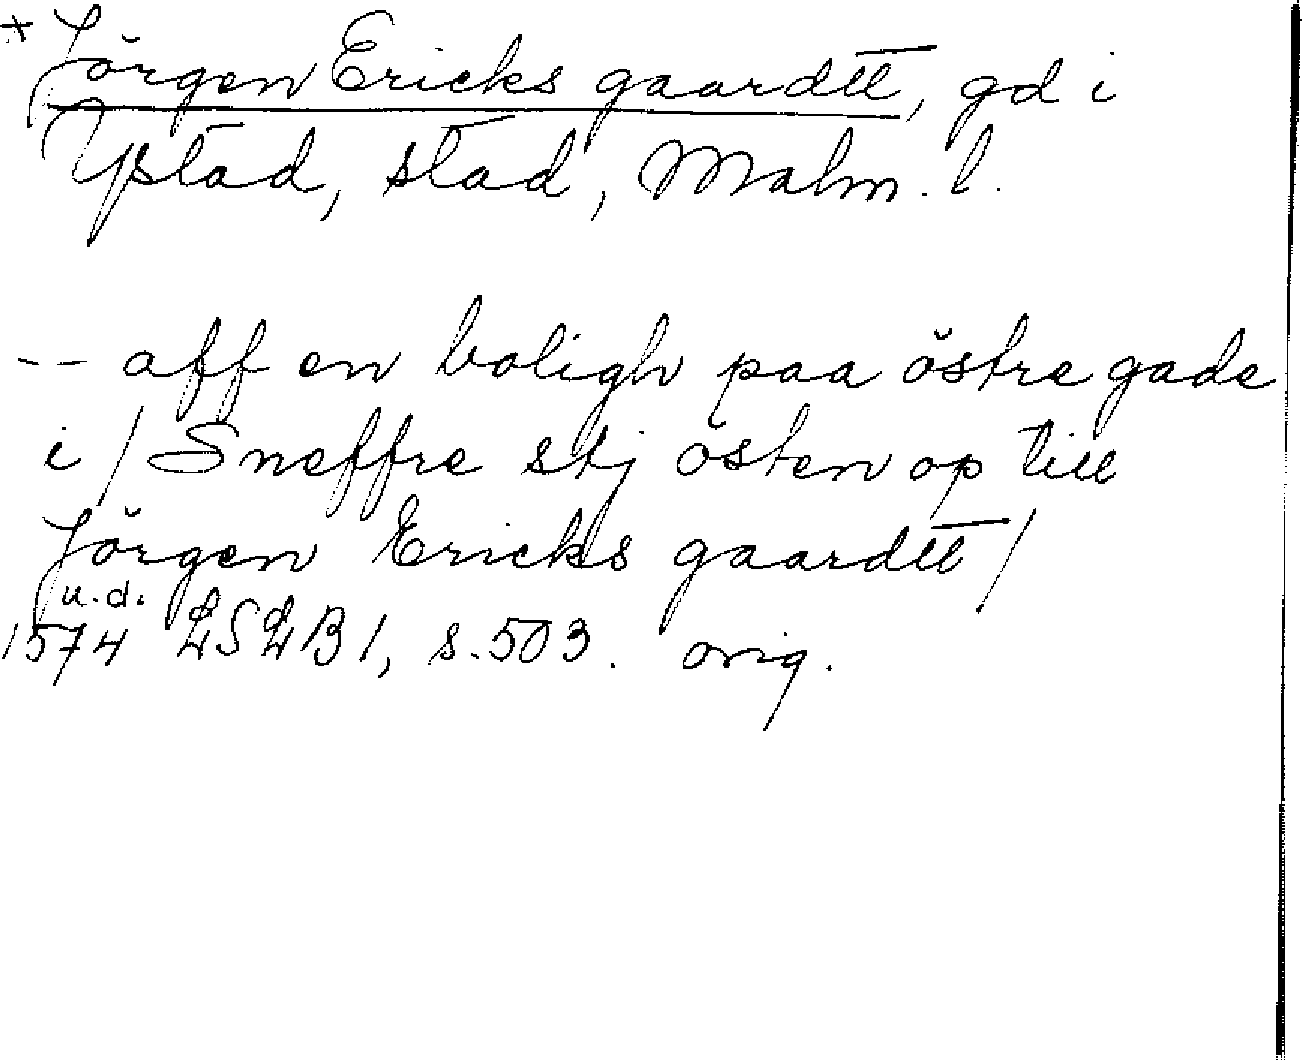 + Jörgen Ericks gaardtt, gd i
Ystad, stad, Malm. l.
-- aff en boligh paa östre gade
i / Sneffre stj östen op till
Jörgen Ericks gaardtt /
u.d.
1574 LSLB 1, s. 503. orig.